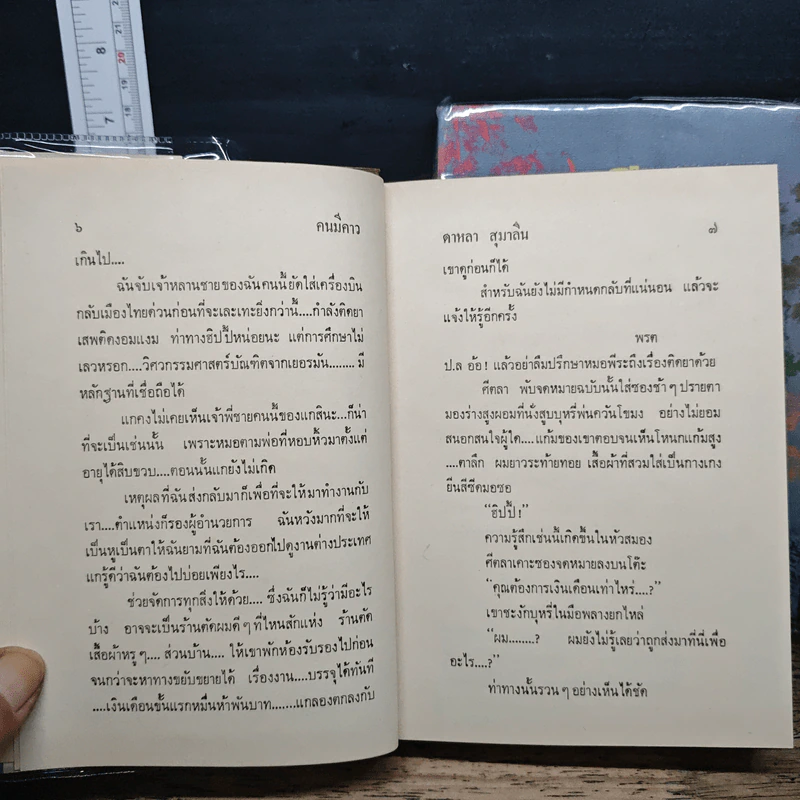 8
7
๖
คนมีคาว
เกินไป....
ฉันจับเจ้าหลานชายของฉันคนนี้ยัดใส่เครื่องบิน
กลับเมืองไทยด่วนก่อนที่จะเละเทะยิ่งกว่านี้....กำลังติดยา
เสพติดงอมแงม ท่าทางฮิปปี้หน่อยนะ แต่การศึกษาไม่
เลวหรอก....วิศวกรรมศาสตร์บัณฑิตจากเยอรมัน........ มี
หลักฐานที่เชื่อถือได้
แกคงไม่เคยเห็นเจ้าพี่ชายคนนี้ของแกสินะ...ก็น่า
ที่จะเป็นเช่นนั้น เพราะหมอตามพ่อที่หอบหิ้วมาตั้งแต่
อายุได้สิบขวบ....ตอนนั้นแกยังไม่เกิด
เหตุผลที่ฉันส่งกลับมาก็เพื่อที่จะให้มาทำงานกับ
เรา....ตำแหน่งก็รองผู้อำนวยการ ฉันหวังมากที่จะให้
เป็นหูเป็นตาให้ฉันยามที่ฉันต้องออกไปดูงานต่างประเทศ
แกรู้ดีว่าฉันต้องไปบ่อยเพียงไร....
ช่วยจัดการทุกสิ่งให้ด้วย.... ซึ่งฉันก็ไม่รู้ว่ามีอะไร
บ้าง อาจจะเป็นร้านตัดผมดีๆที่ไหนสักแห่ง ร้านตัด
เสื้อผ้าหรูๆ.... ส่วนบ้าน.... ให้เขาพักห้องรับรองไปก่อน
จนกว่าจะหาทางขยับขยายได้ เรื่องงาน....บรรจุได้ทันที
....เงินเดือนขั้นแรกหมื่นห้าพันบาท.......แกลองตกลงกับ
ดาหลา สุมาลิน
๗
เขาดูก่อนก็ได้
สำหรับฉันยังไม่มีกำหนดกลับที่แน่นอน แล้วจะ
แจ้งให้รู้อีกครั้ง
พรต
ป.ล อ้อ! แล้วอย่าลืมปรึกษาหมอพีระถึงเรื่องติดยาด้วย
ศีตลา พับจดหมายฉบับนั้นใส่ซองช้าๆปรายตา
มองร่างสูงผอมที่นั่งสูบบุหรี่พ่นควันโขมง อย่างไม่ยอม
สนอกสนใจผู้ใด....แก้มของเขาตอบจนเห็นโหนกแก้มสูง
....ตาลึก ผมยาวระท้ายทอย เสื้อผ้าที่สวมใส่เป็นกางเกง
ยีนสีซีดมอซอ
“ฮิปปี้!”
ความรู้สึกเช่นนี้เกิดขึ้นในหัวสมอง
ศีตลาเคาะซองจดหมายลงบนโต๊ะ
“คุณต้องการเงินเดือนเท่าไหร่....?”
เขาชะงักบุหรี่ในมือพลางยกไหล่
“ผม........? ผมยังไม่รู้เลยว่าถูกส่งมาที่นี่เพื่อ
อะไร....?”
ท่าทางนั้นรวนๆอย่างเห็นได้ชัด